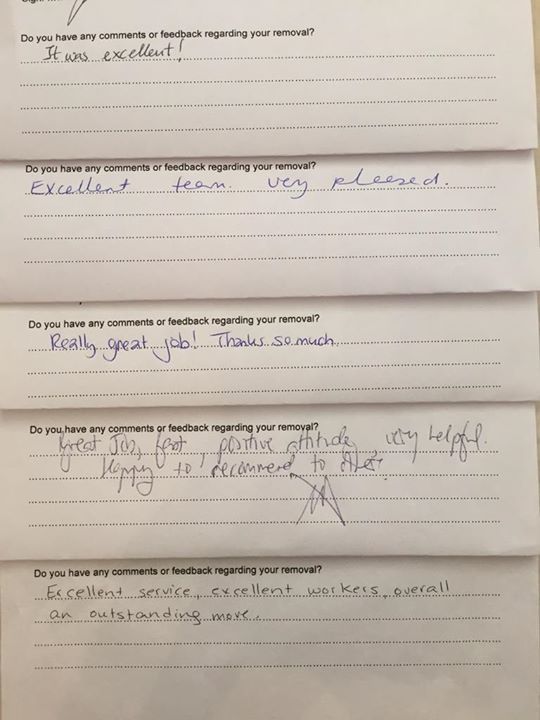 Do you have any comments or feedback regarding your removal?
It was excellent!
Do you have any comments or feedback regarding your removal?
Excellent team. very pleased.
Do you have any comments or feedback regarding your removal?
Really great job! Thanks so much.
Do you have any comments or feedback regarding your removal?
Great Job, fast, positive attitude, very helpful.
Happy to recommend to
Do you have any comments or feedback regarding your removal?
Excellent service, excellent workers, overall
an outstanding move.